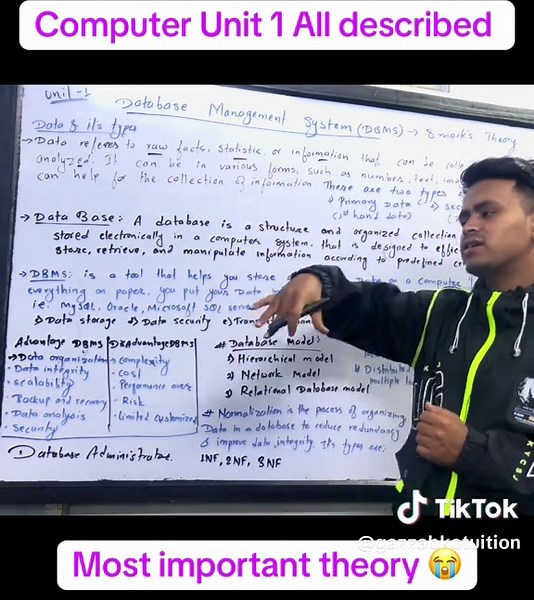 Computer Unit 1 All described
Unit-1
Database Management System (DBMS) → 8 marks Theory
Data & its types
→ Data referes to raw facts, Statistic, or information that can be
analyzed. It can be in various forms, such as number, text,
can help for the collection of information. There are two types
1) Primary Data
(1st hand data)
→ Data Base: A database is a structure and organized collection
stored electronically in a computer system, that is designed to
store, retrieve, and manipulate information according to predefined
→ DBMS: is a tool that helps you store Data on a computer
everything on paper, you put your Data
i.e. MySQL, Oracle, Microsoft SQL
1) Data storage 2) Data security
Advantage DBMS Disadvantage DBMS
→ Data organization • complexity
• Data integrity • cost
• scalability • Performance
• Backup and recovery • Risk
• Data analysis • limited customized
• Security
Database
# Database model:
1) Hierarchical model
2) Network Model
3) Relational Database model
# Distributed
multiple
# Normalization is the process of organizing
Data in a database to reduce redundancy
& improve data integrity. Its types are:
1NF, 2NF, 3NF
KYCSJ
TikTok
@gazzabkotuition
Most important theory 😭